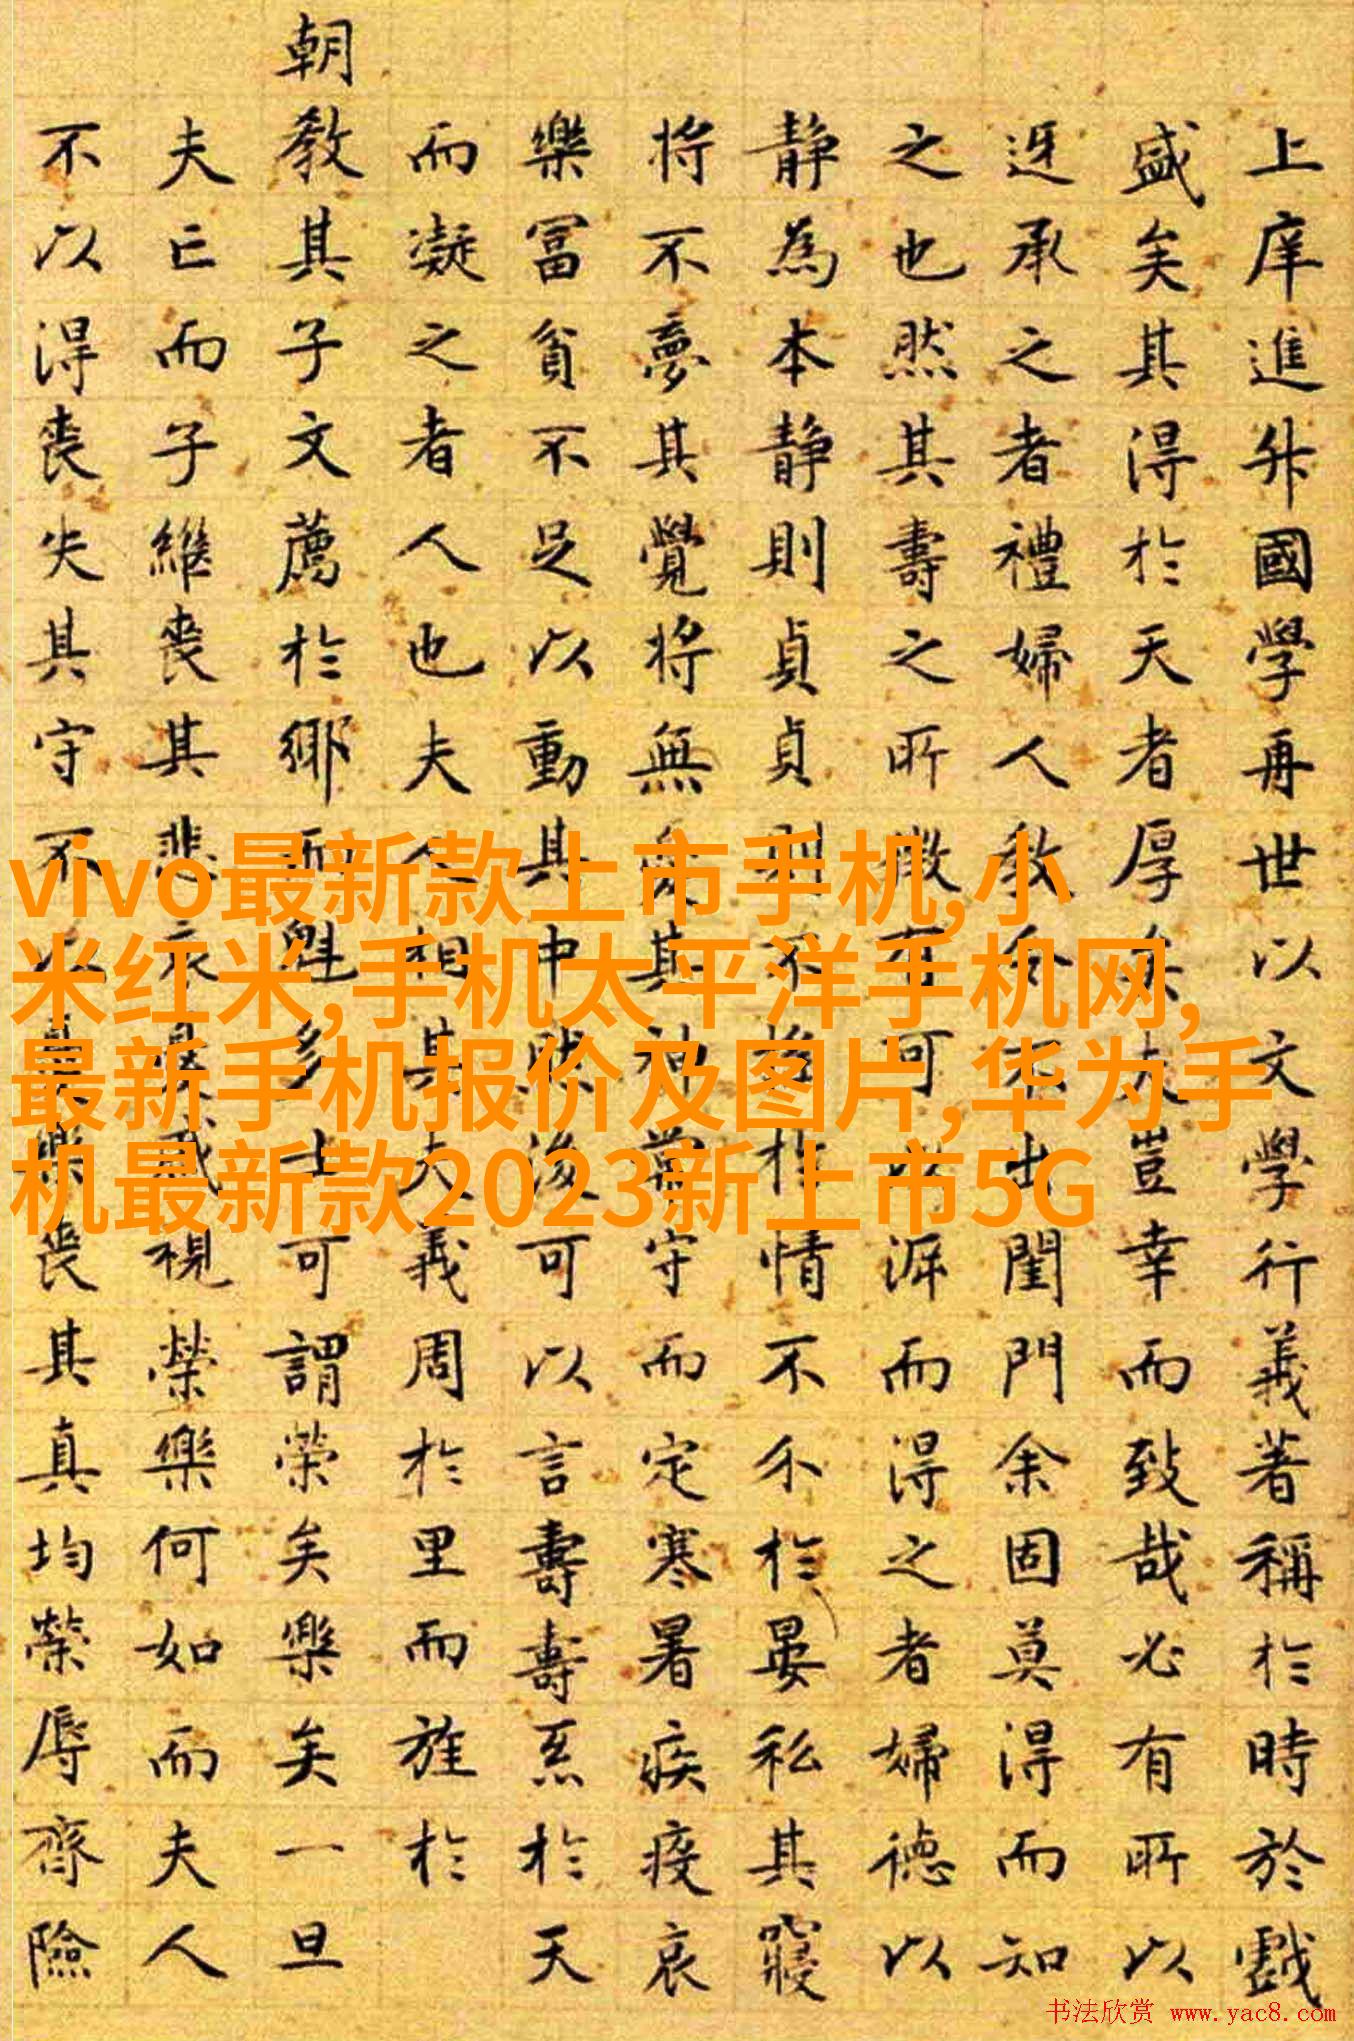 上庠進升國學再世以文學行義著稱於時於戲
盛矣其得於天者厚矣夫豈幸而致哉必有所以
迓承之者禮婦人教令不出閨門余固莫得而知
之也然其壽之所徵有可以涯而得之者婦德以
静為本静則貞貞則不移於情不尒於晏私其寢
將不夢其覺將無憂其神常守而定寒暑疾疫哀
樂冨貧不足以動其中然後可以言壽壽烝於天
而凝之者人也夫人相其夫義周於里而旌於
朝教其子文薦於鄉而魁多士可謂榮矣樂矣一旦
夫亡而子繼喪其悲哀視榮樂何如而夫人
不以得喪失其守不以樂喪其真均榮辱齊險
vivo最新款上市手机,小
米红米,手机太平洋手机网,
最新手机报价及图片,华为手
机最新款2023新上市5G
书法欣赏 www.yac8.com